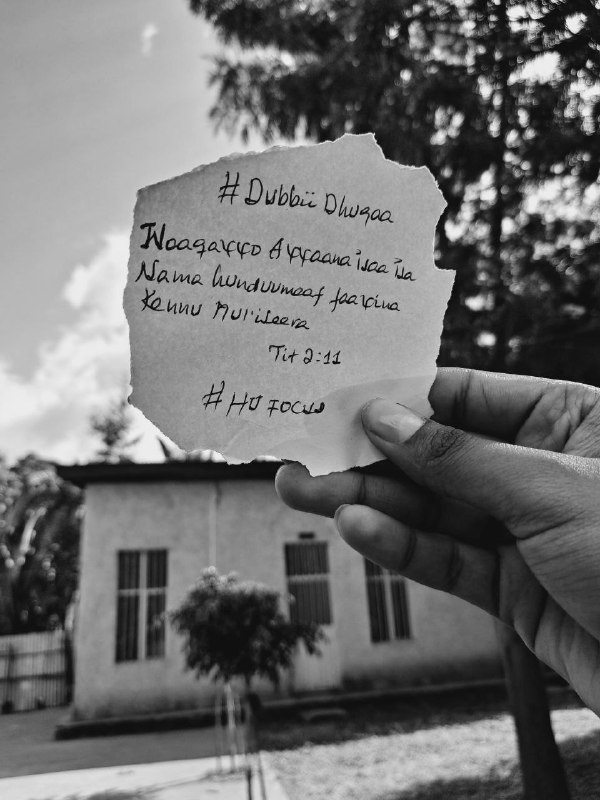 #Dubbii Dhugaa
Waaqayyo Ayyaana isaa isa
Nama hunduumaaf faayina
Kennu Mul'iseera
Tit 2:11
#HU FOCUS